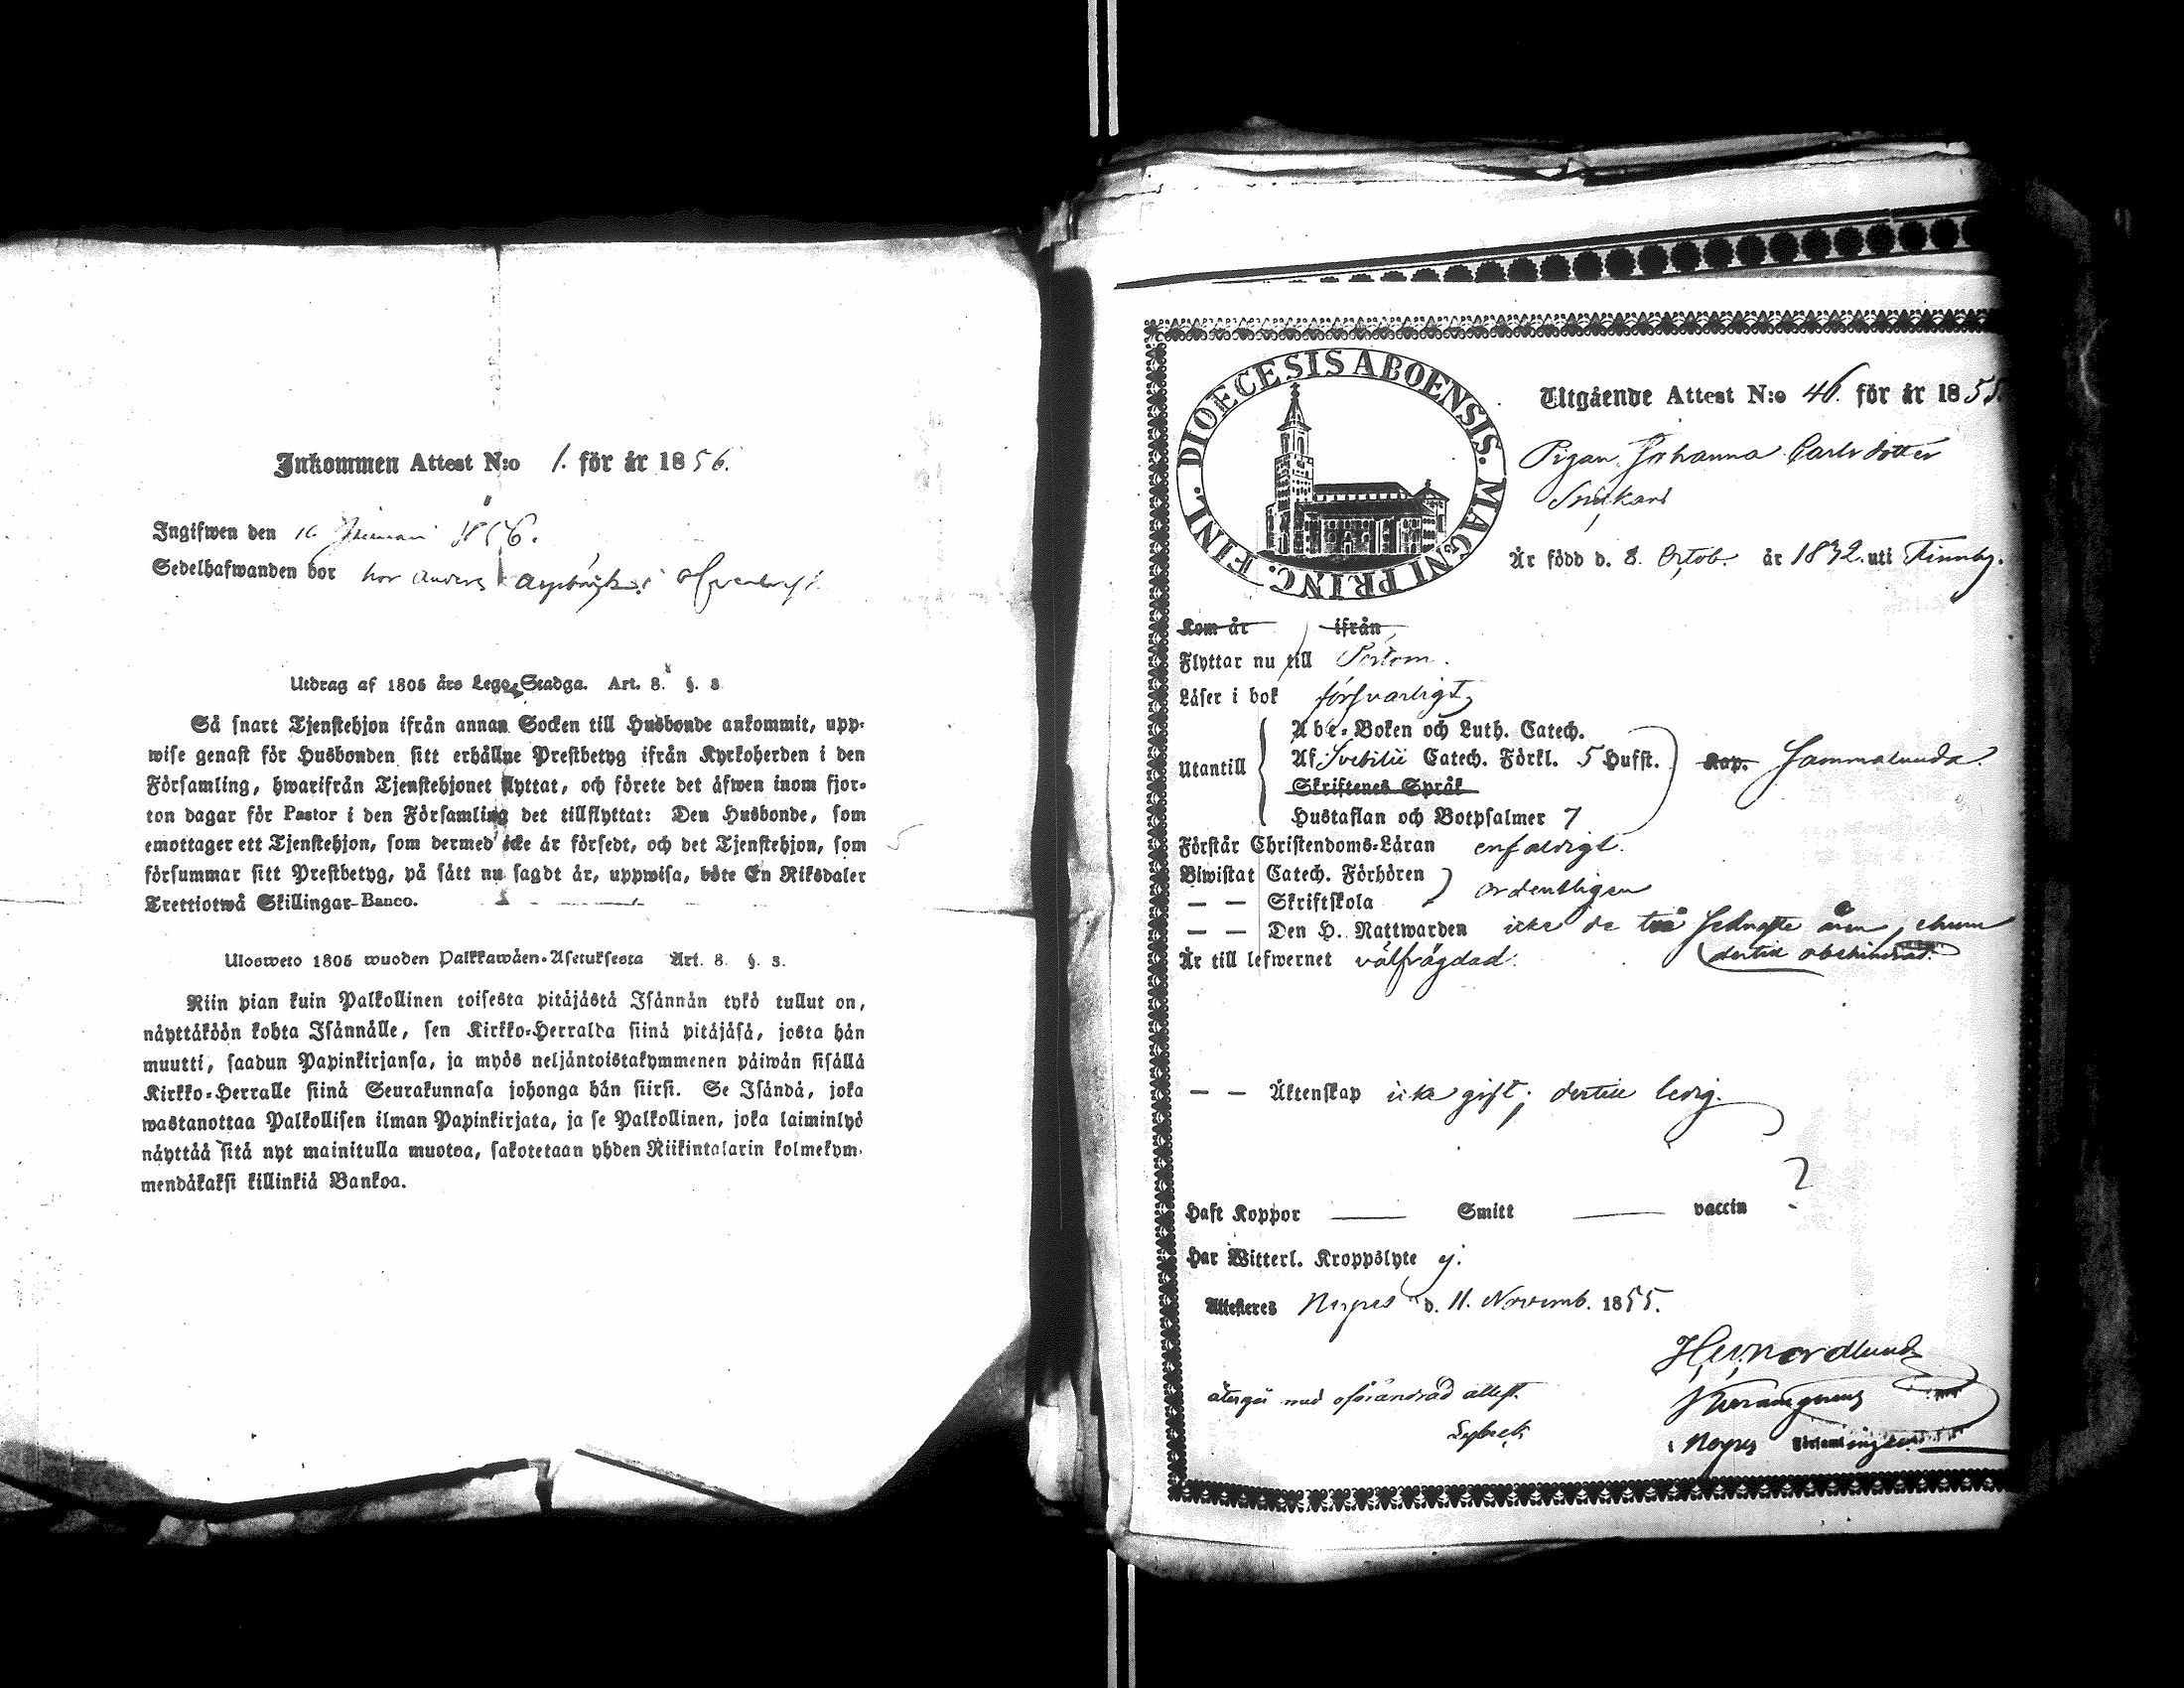 Inkommen Attest N:o 1. för år 1856.
Ingifwen den 16 Januari 1856.
Sedelhafwanden bor hos Anders
Utdrag af 1805 års Lego-Stadga. Art. 8. §. 3
Så snart Tjenstehjon ifrån annan Socken till Husbonde ankommit, upp-
wise genast för Husbonden sitt erhållne Prestbetyg ifrån Kyrkoherden i den
Församling, hwarifrån Tjenstehjonet flyttat, och förete det äfwen inom fjor-
ton dagar för Pastor i den Församling det tillflyttat: Den Husbonde, som
emottager ett Tjenstehjon, som dermed icke är försedt, och det Tjenstehjon, som
försummar sitt Prestbetyg, på sätt nu sagdt är, uppwisa, böte En Riksdaler
Trettiotwå Skillingar Banco.
Ulosweto 1805 wuoden Palkkawäen-Asetuksesta Art. 8. §. 3.
Niin pian kuin Palkollinen toisesta pitäjästä Isännän tykö tullut on,
näyttäköön kohta Isännälle, sen Kirkko-Herralda siinä pitäjäsä, josta hän
muutti, saadun Papinkirjansa, ja myös neljäntoistakymmenen päiwän sisällä
Kirkko-Herralle siinä Seurakunnasa johonga hän siirsi. Se Isändä, joka
wastanottaa Palkollisen ilman Papinkirjata, ja se Palkollinen, joka laiminlyö
näyttää sitä nyt mainitulla muotoa, sakotetaan yhden Riikintalarin kolmekym-
mendäkaksi killinkiä Bankoa.
DIOECESIS ABOENSIS. MAGNI PRINC. FINL.
Utgående Attest N:o 46. för år 1855.
Pigan Johanna Carlsdotter
Är född d. 8. Octob. år 1832. uti Finnby.
Kom år ifrån
Flyttar nu till Pörtom.
Läser i bok försvarligt
Utantill
Abc-Boken och Luth. Catech.
Af Svebilii Catech. Förkl. 5 Hufst.
Skriftenes Språk
Hustaflan och Botpsalmer 7
Kap. Sammalunda.
Förstår Christendoms-Läran enfaldigt.
Biwistat Catech. Förhören
— — Skriftskola
ordentligen
— — Den H. Nattwarden icke de två sednaste åren, ehuru
dertill obehindrad.
Är till lefwernet välfrägdad.
— — Äktenskap icke gift, dertill ledig.
Haft Koppor — Smitt — vaccin ?
Har Witterl. Kroppslyte ej.
Attesteras Nerpes d. 11. Novemb. 1855.
återgår med oförändrad attest.
i Nerpes Församling